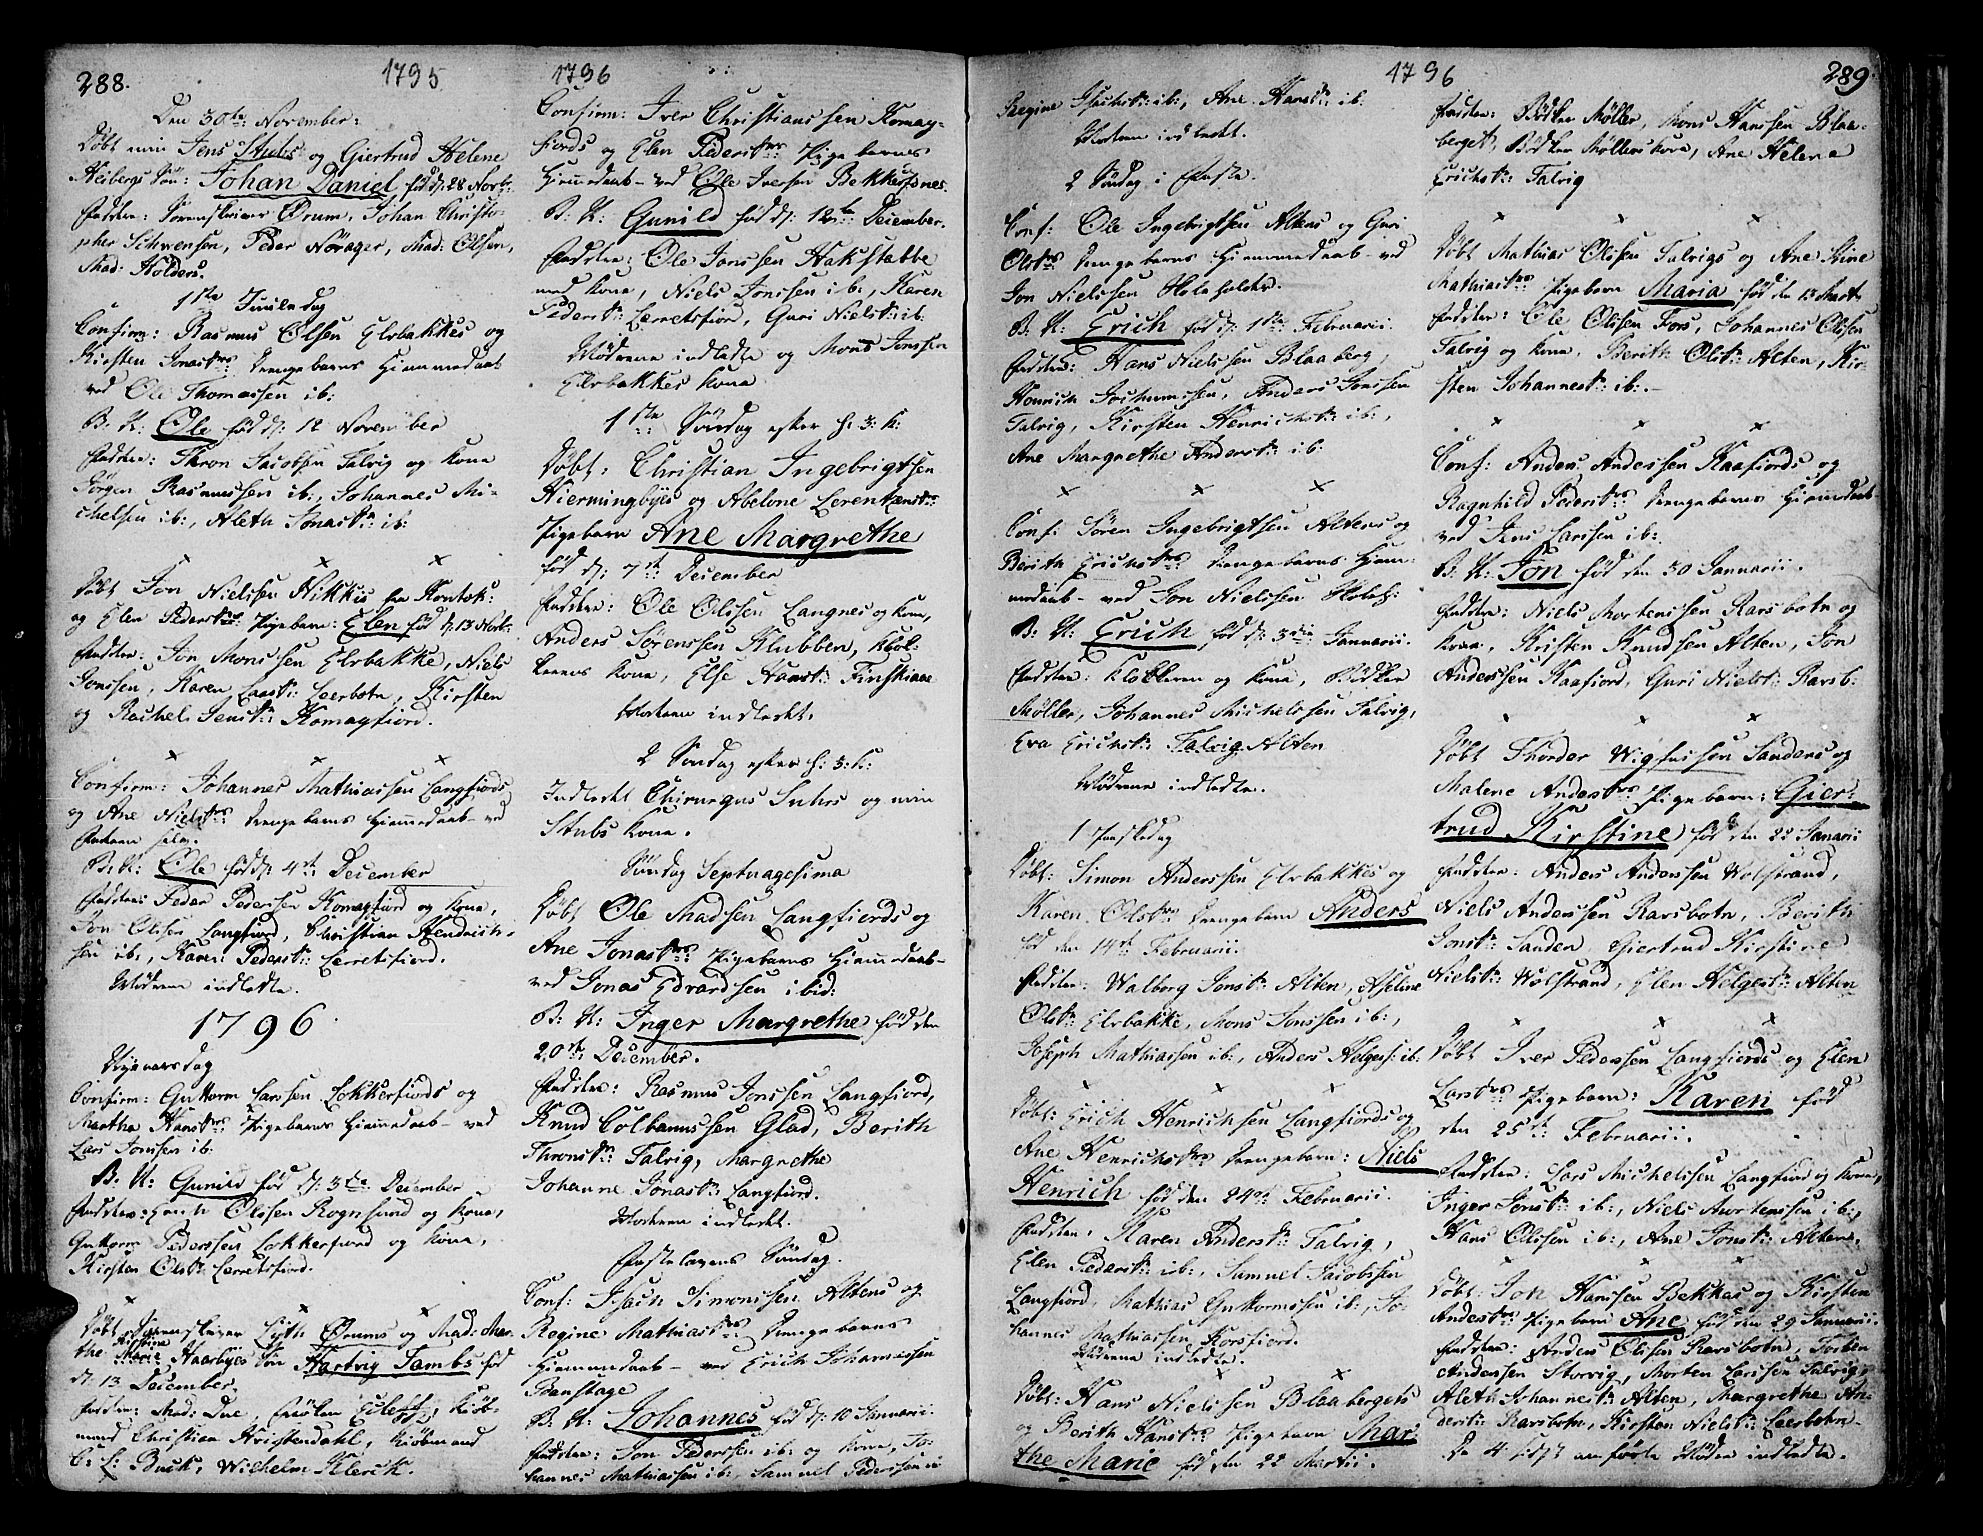 288. 1795 1796
Den 30te November:
Døbt min Jens Stubs og Giertrud Helene
Heibergs Søn: Johan Daniel fød d: 28 Novb:
Faddere: Sorenskriver Ørum, Johan Christo-
pher Schwensen, Peder Nörager, Mad: Olsen,
Mad: Kölders.
1ste Juuledag
Confirm: Rasmus Olsen Elvbakkes og
Kirsten Jonastrs Drengebarns Hiemmedaab
ved Ole Thomassen ib:
B: N: Ole fød d: 12 November
Faddere: Thron Jacobsen Talvig og kone
Jörgen Rasmussen ib:, Johannes Mi-
chelsen ib:, Aleth Jonastr: ib:
x x x
Døbt Jon Nielsen Nikkis fra Kontok:
og Elen Pederstrs Pigebarn: Elen fød d: 13 Novb:
Faddere: Jon Monssen Elvbakke, Niels
Jonssen, Karen Larstr: Leerbotn, Kirsten
og Rachel Jenstr: Komagfiord.
x x x
Confirm: Johannes Mathiassen Langfiords
og Ane Nielstrs Drengebarns Hiemmedaab ved
Faderen selv.
B: N: Ole fød d: 4de December
Faddere: Peder Pedersen Komagfiord og kone,
Jon Olsen Langfiord, Christian Hendrich-
sen ib:, Karen Pederstr: Lerretsfiord.
Mødrene indledte.
1796
Nyeaarsdag
Confirm: Guttorm Larssen Lokkerfiords og
Martha Hanstrs Pigebarns Hiemmedaab ved
Lars Jonssen ib:
B: N: Gunild fød d: 3die December
Faddere: Erich Olssen Rognsund og kone,
Guttorm Pederssen Lokkerfiord og kone,
Kirsten Olstr: Lerretsfiord.
x x x
Døbt Sorenskriver Lyth Ørums og Mad: Mar-
the Kirstine Marie Haarbyes Søn Hartvig Lambs fød
d: 13 December.
Faddere: Mad: Due, Frølen Eileff, kiøb-
mand Christian Kristendahl, kiøbmand
C: L: Buck, Wilhelm Klerck.
Confirm: Iver Christianssen Komag-
fiords og Elen Pederstrs Pigebarns
Hiemmedaab ved Ole Iversen Bekkesfnes
B: N: Gunild fød d: 12te December.
Faddere: Ole Jonssen Hakstabbe
med kone, Niels Jonssen ib:, Karen
Pederstr: Lerretsfior, Guri Nielstr: ib:
Mødrene indledte og Mons Jonssen
Elvbakkes kone
1ste Söndag efter H: 3: K:
Døbt: Christian Ingebrigtsen
Hiermingbyes og Abelone Lorentzenstr:
Pigebarn Ane Margrethe
fød d: 7de December
Faddere: Ole Olssen Langnes og kone,
Anders Sørenssen Klubben, Klok-
kerens kone, Else Hanstr: Finskiane
Moderen indledet.
2 Søndag efter H: 3: K:
Indledet Chirurgus Suhrs og min
Stubs kone.
Søndag Septuagesima
Døbt Ole Madsen Langfiords og
Ane Jonastrs Pigebarns Hiemmedaab
ved Jonas Edvardsen ibid:
B: N: Inger Margrethe fød den
20de December.
Faddere: Rasmus Jonssen Langfiord,
Knud Colbanussen Glad, Berith
Thronstr: Talvig, Margrethe
Johanne Jonastr: Langfiord.
Moderen indledet.
Fastelavens Søndag.
Conf: Isach Simonssen Altens og
Regine Mathiastrs Drengebarns
Hiemmedaab ved Erich Johannssen
B: N: Johannes fød d: 10 Januarii
Faddere: Jon Pederssen ib: og kone, Jo-
hannes Mathiassen ib:, Samuel Pederssen ib
1796 289
Regine Isachstr: ib:, Ane Hanstr: ib:
Moderen indledet.
2 Søndag i Faste.
Conf: Ole Ingebrigtsen Altens og Guri
Olstrs Drengebarns Hiemmedaab ved
Jon Nielssen Holekolden.
B: N: Erich fød d: 1ste Februarii
Faddere: Hans Nielssen Blaaberg,
Henrich Jochumssen, Anders Jonssen
Talvig, Kirsten Henrichstr: ib:,
Ane Margrethe Anderstr: ib:
x x x
Conf: Sören Ingebrigtsen Altens og
Berith Erichstrs Drengebarns Hiem-
medaab ved Jon Nielssen Holek:
B: N: Erich fød d: 3die Januarii.
Faddere: Klokkeren og kone, Bødker
Møller, Johannes Michelssen Talvig,
Eva Erichstr: Talvig Alten
Mødrene indledte.
1 Paaskedag
Døbt: Simon Anderssen Elvbakkes og
Karen Olstrs Drengebarn Anders
fød den 14de Februarii.
Faddere: Walborg Jonstr: Alten, Aseline
Olstr: Elvbakke, Mons Jonssen ib:,
Joseph Mathiassen ib:, Anders Helgers: ib:
x x x
Døbt: Erich Henrichsen Langfiords og
Ane Henrichstrs Drengebarn: Niels
Henrich fød den 24de Februarii.
Faddere: Karen Anderstr: Talvig,
Elen Pederstr: ib:, Samuel Jacobssen
Langfiord, Mathias Guttormssen ib:, Jo-
hannes Mathiassen Korsfiord.
Mødrene indledte.
x x
Døbt: Hans Nielssen Blaabergets
og Berith Hanstrs Pigebarn Mar-
the Marie fød den 22 Martii.
Faddere: Bödker Møller, Mons Hanssen Blaa-
berget, Bödker Møllers kone, Ane Helene
Erichstr: Talvig
x x x
Døbt Mathias Olssen Talvigs og Ane Stine
Mathiastrs Pigebarn Maria fød den 13 Mart:
Faddere: Ole Olssen Fors, Johannes Olssen
Talvig og kone, Berith Olstr: Alten, Kir-
sten Johannestr: ib:
x x x
Conf: Anders Anderssen Kaafiords og
Ragnhild Pederstrs Drengebarns Hiemmedaab
ved Jens Larssen ib:
B: N: Jon fød den 30 Januarii.
Faddere: Niels Mortenssen Rarsbotn og
kone, Kristen Knudsen Alten, Jon
Anderssen Kaafiord, Guri Nielstr: Rarsb:
x x x
Døbt Thorder Wigfussen Sandens og
Malene Anderstrs Pigebarn: Gier-
trud Kirstine fød den 22 Januarii
Faddere: Anders Anderssen Wolstrand,
Niels Anderssen Rarsbotn, Berith
Jonstr: Sanden, Giertrud Kirstine
Nielstr: Wolstrand, Elen Helgerstr: Alten
x x x
Døbt Iver Pederssen Langfiords og Elen
Larstrs Pigebarn: Karen fød
den 25de Februarii.
Faddere: Lars Michelssen Langfiord og kone,
Inger Jonstr: ib:, Niels Mortenssen ib:,
Hans Olssen ib:, Ane Jonstr: Altens,
x x x
Døbt: Jon Hanssen Bekkas og Kirsten
Anderstrs Pigebarn Ane fød den 29 Januarii.
Faddere: Anders Olssen Rarsbotn, Torsten
Anderssen Storvig, Morten Larssen Talvig,
Aleth Johannestr: Alten, Margrethe An-
derstr: Rarsbotn, Kirsten Nielstr: Leerbotn
De 4 sidst anførte Mødre indledte.